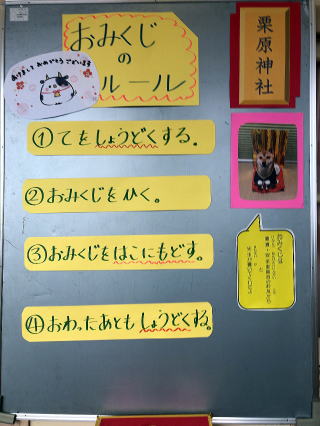 おみくじ
の
ルール
あけまして おめでとうございます
栗原神社
①てをしょうどくする。
②おみくじをひく。
③おみくじをはこにもどす。
④おわったあともしょうどくする。
おみくじは